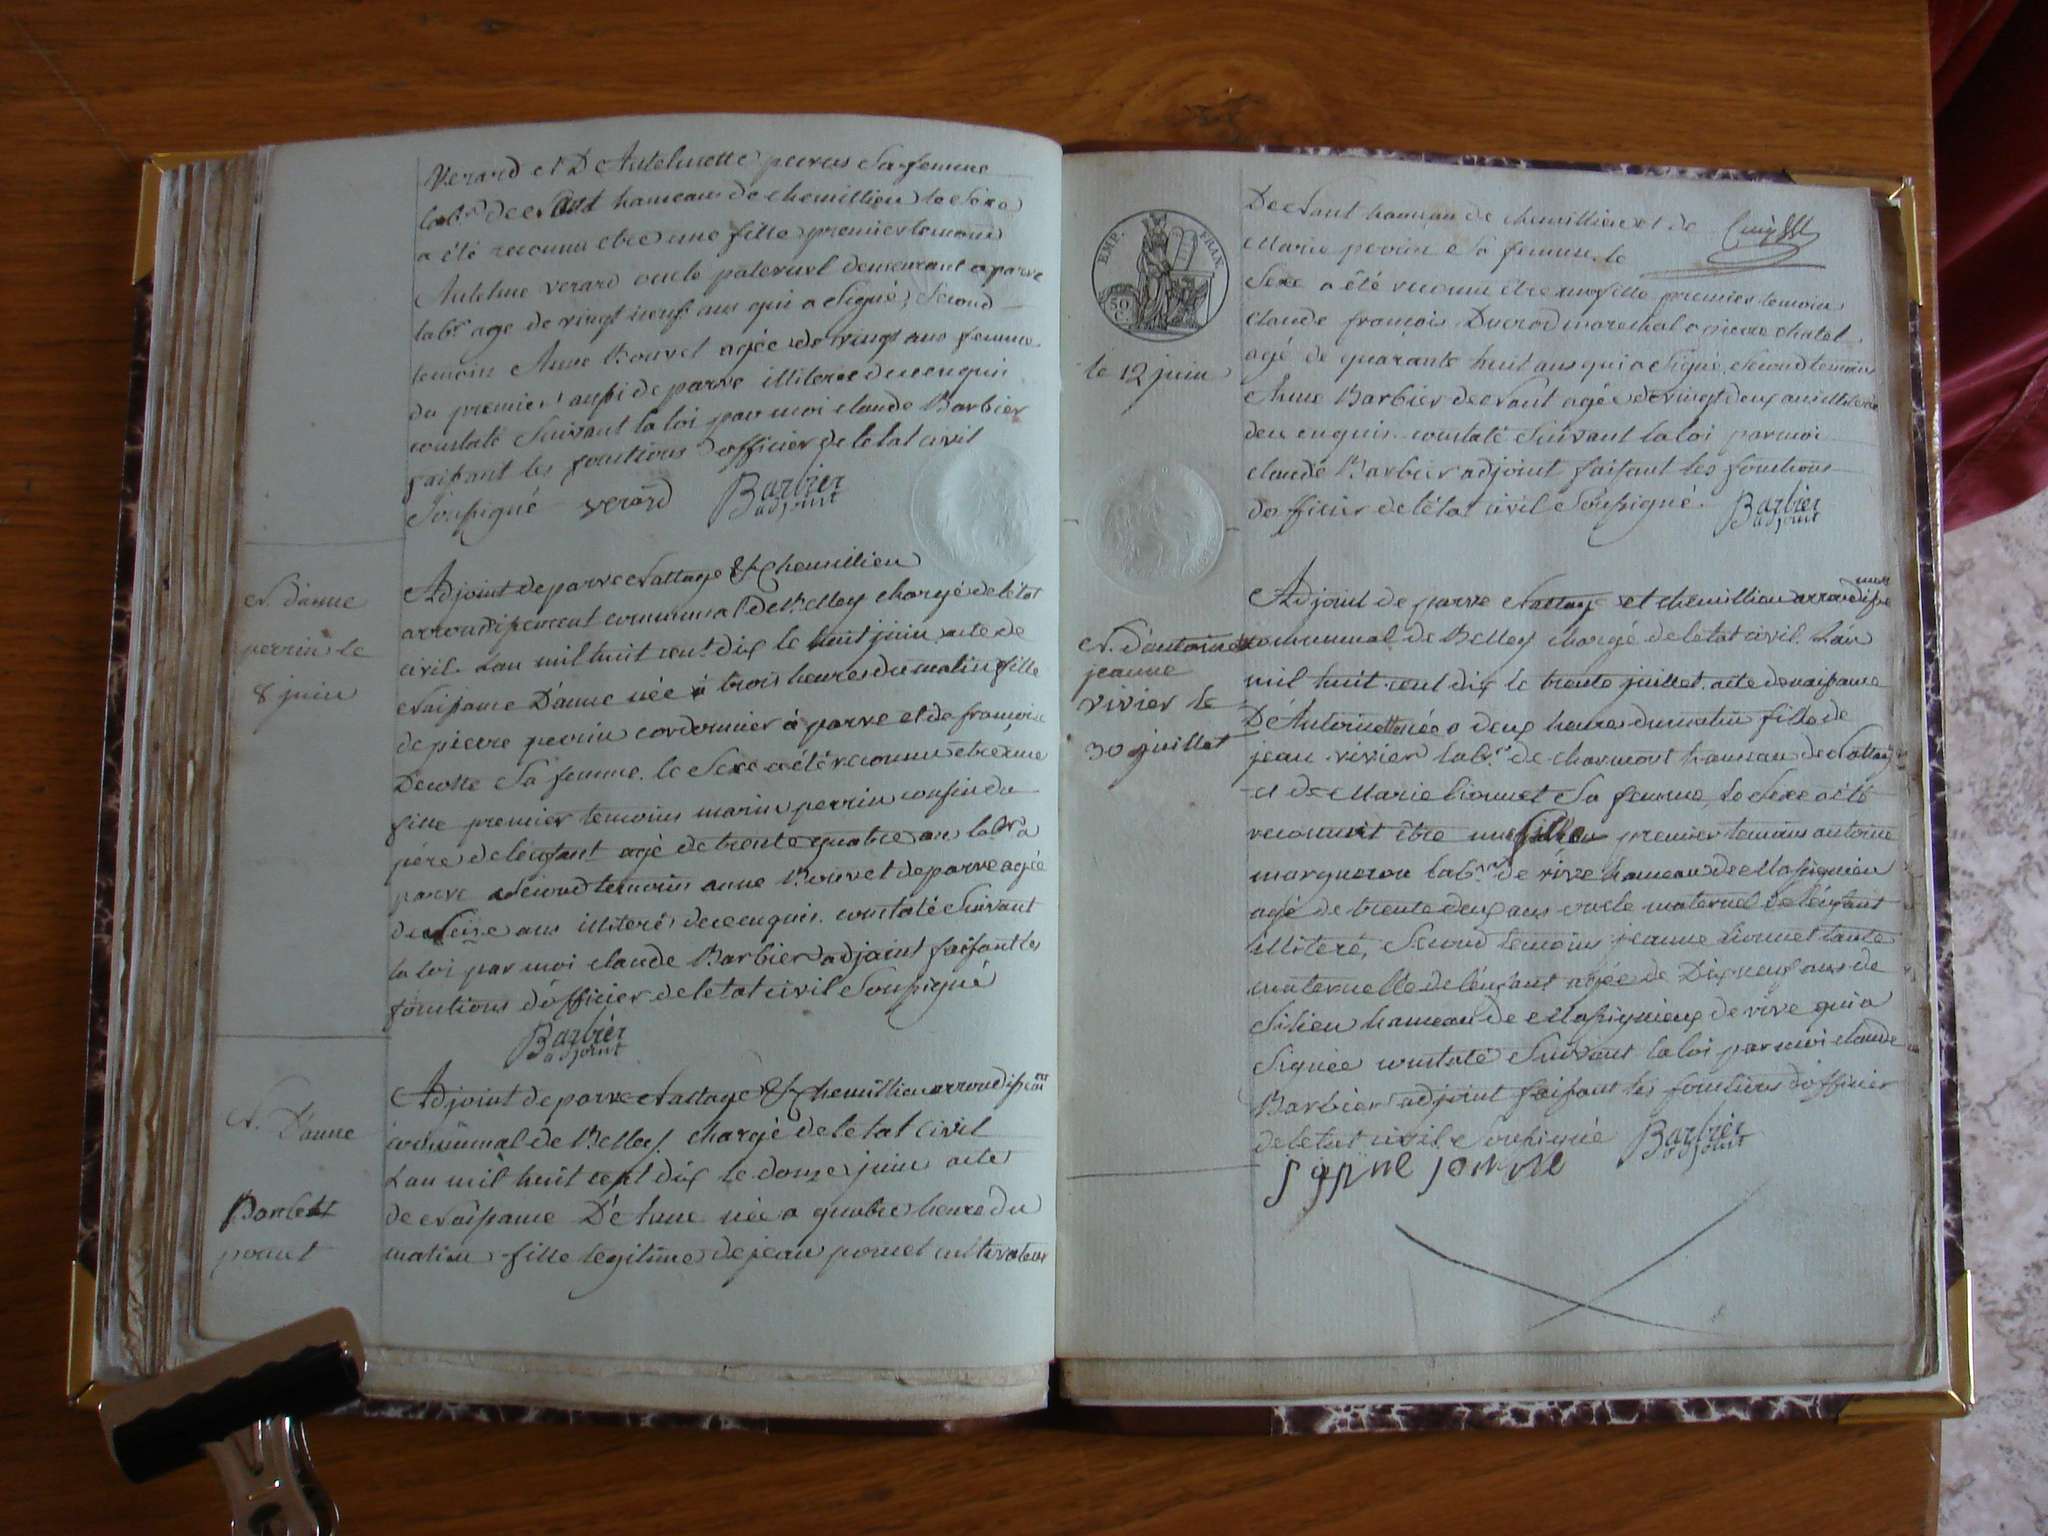 Verard et D Antelmette perras Sa femme
lab.r de Nant hameau de chemillieu le Sexe
a été reconnu etre une fille premier temoin
Antelme verard oncle paternel demeurant a parve
lab.r age de vingt neuf ans qui a Signé, Second
temoin Anne Bouvet agée de vingt ans femme
du premier aussi de parve illiteree de ce enquis
constaté Suivant la loi par moi claude Barbier
faisant les fonctions d'officier de letat civil
Soussigné verard Barbier
adjoint
N. d'anne
perrin le
8 juin
Adjoint de parve Nattage & Chemillieu
arrondissement communal de Belley chargé de létat
civil. Lan mil huit cent dix le huit juin acte de
Naissance D'anne née à trois heures du matin fille
de pierre perrin cordonnier à parve et de françoise
Decotte Sa femme. le Sexe a été reconnu etre une
fille premier temoins marin perrin cousin du
pére de lénfant agé de trente quatre an lab.r a
parve Second temoins anne Bouvet de parve agée
de Seize ans illiteré de ce enquis. constaté Suivant
la loi par moi claude Barbier adjoint faisant les
fonctions d'officier de letat civil Soussigné
Barbier
adjoint
N. D'anne
ponnet
Adjoint de parve Nattage & Chemillieu arrondissement
communal de Belley. chargé de letat civil
Lan mil huit cent dix le douze juin acte
de Naissance D'Anne née a quatre heure du
matin fille legitime de jean ponnet cultivateur
EMP. FRAN.
50
C.
le 12 juin
De Nant hameau de chemillieu et de
Marie perrin Sa femme. le
Sexe a été reconnu être une fille premier temoin
claude françois Ducrod marechal a pierre chatel
agé de quarante huit ans qui a Signé, Second temoin
Anne Barbier de Nant agée de vingt deux ans illiterée
de ce enquis. constaté Suivant la loi par moi
claude Barbier adjoint faisant les fonctions
d'officier de létat civil Soussigné. Barbier
adjoint
N. d'antoinette
jeanne
vivier le
30 juillet
Adjoint de parve Nattage et chemillieu arrondissement
communal de Belley chargé de letat civil. L'an
mil huit cent dix le trente juillet. acte de naissance
D'Antoinette née a deux heures du matin fille de
jean vivier lab.r de charmont hameau de Nattage
et de Marie Lionnet Sa femme, le Sexe a été
reconnut être une fille premier temoins antoine
margueron lab.r de rive hameau de Massignieu
agé de trente deux ans oncle maternel de lénfant
illiteré, Second temoins jeanne Lionnet tante
maternelle de lénfant agée de Dix neuf ans de
Silieu hameau de Massignieux de rive qui a
Signée constaté Suivant la loi par moi claude
Barbier adjoint faisant les fonctions d'officier
de letat civil Soussigné Barbier
adjoint